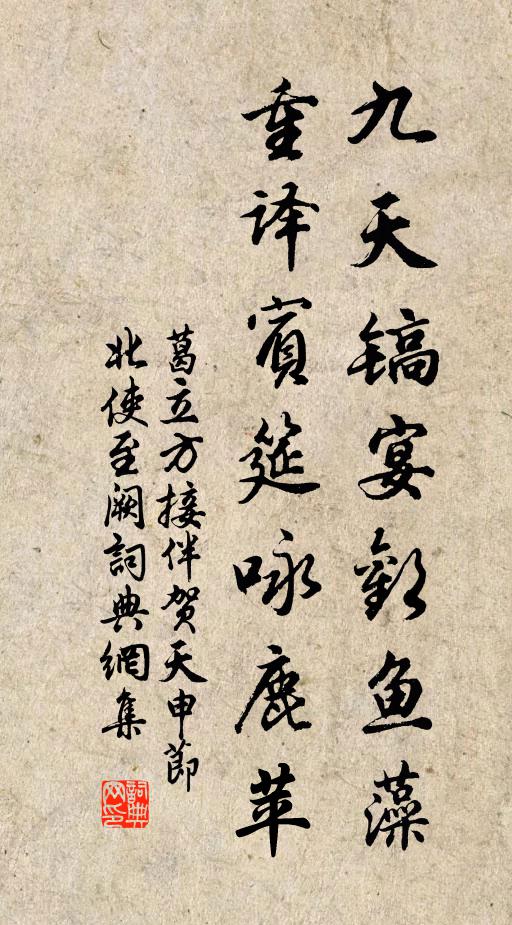 九天镐宴歡鱼藻
重译賓筵咏鹿苹
葛立方接伴贺天申節
北使至阙詞典網集
詞典网印